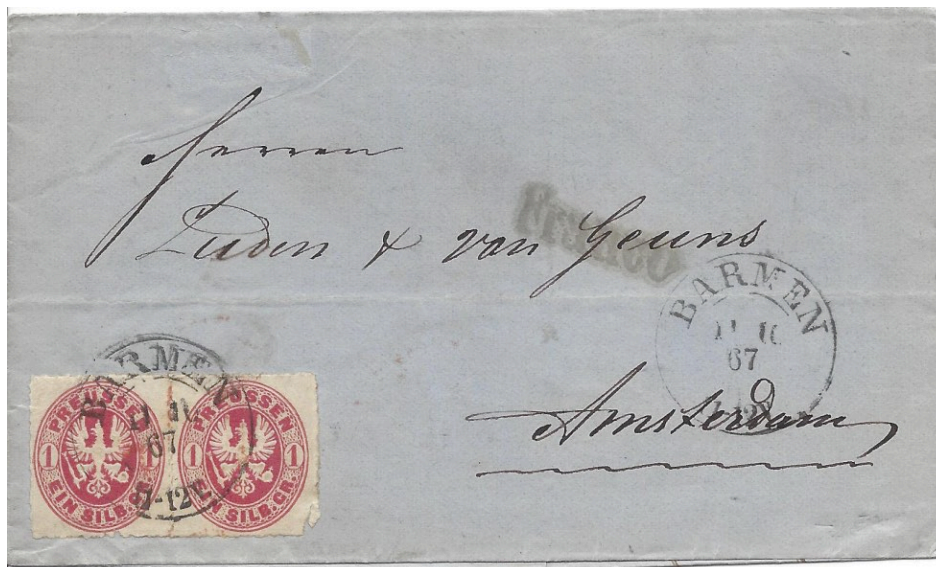 Herren
Luden & van Geuns
Franco
BARMEN
67
Amsterdam
BARMEN
67
11-12
PREUSSEN
1 1
EIN SILB. GR.
PREUSSEN
1 1
EIN SILB. GR.